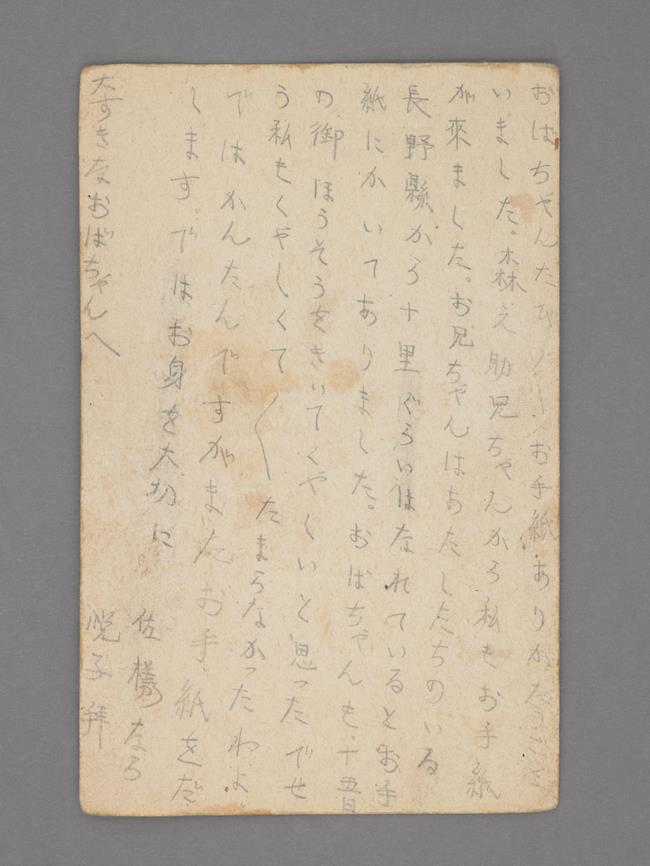 おばちゃん お手紙ありがたうござ
いました。森之助兄ちゃんから私もお手紙
が來ました。お兄ちゃんはわたしたちのいる
長野縣から十里ぐらいはなれているとお手
紙にかいてありました。おばちゃんも十五日
の御ほうそうをきいてくやしいと思ったでせ
う私もくやしくて〱たまらなかったわよ、
ではかんたんですがまたお手紙をだ
します。ではお身を大切に
佐樣なら
悦子拜
大すきなおばちゃんへ